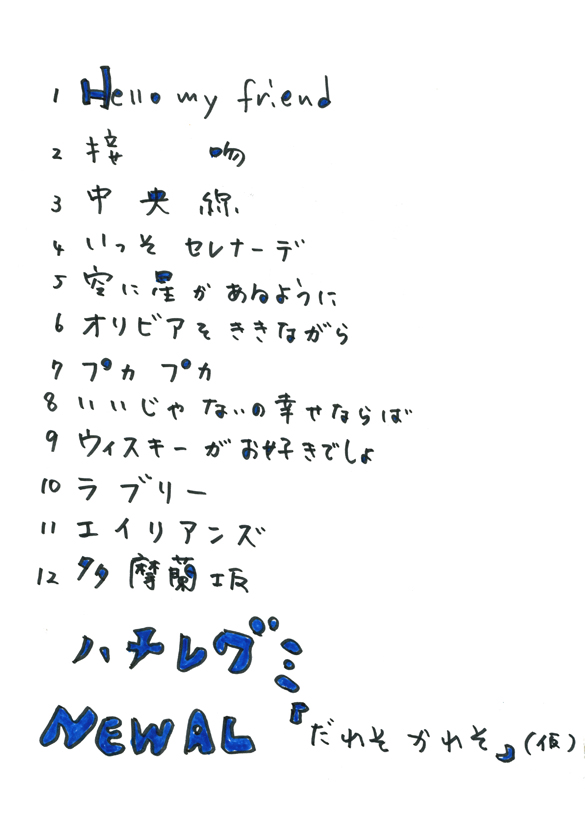 1 Hello my friend
2 接吻
3 中央線
4 いっそ セレナーデ
5 空に星があるように
6 オリビアをききながら
7 プカプカ
8 いいじゃないの幸せならば
9 ウィスキーがお好きでしょ
10 ラブリー
11 エイリアンズ
12 多摩蘭坂
ハナレグミ
NEW AL 『だれそかれそ』(仮)